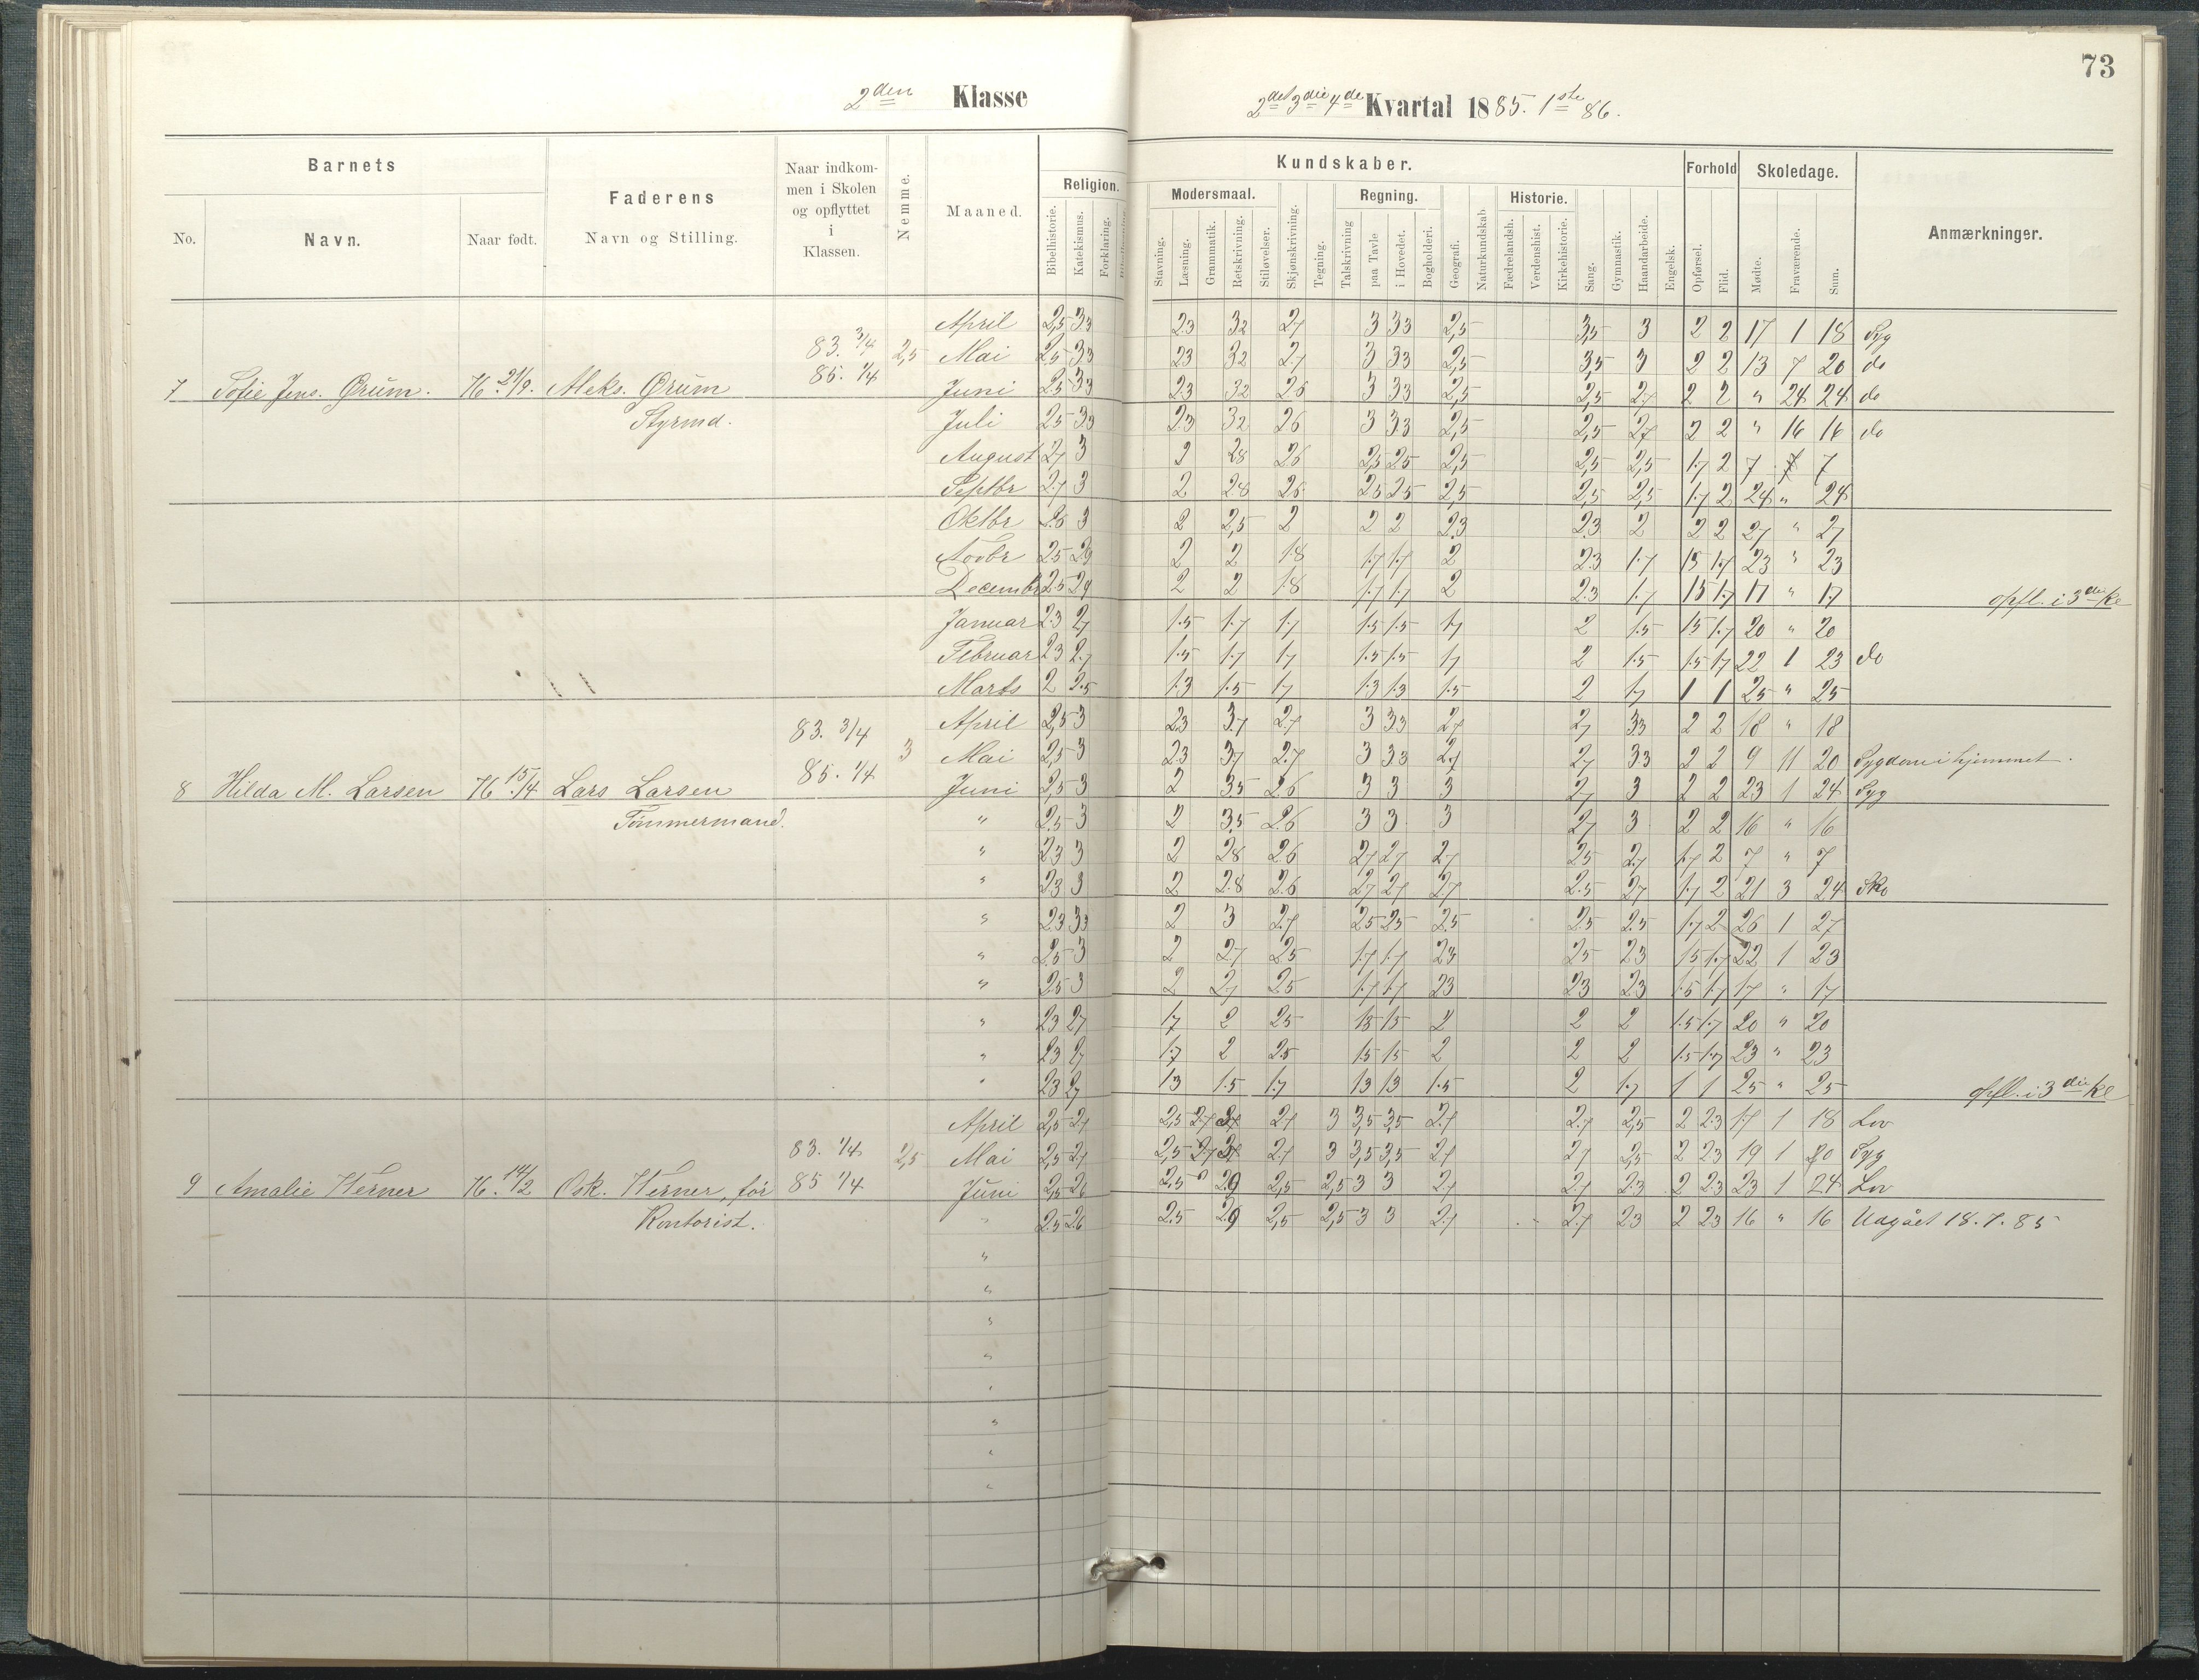 73
2den Klasse
2det 3die 4de Kvartal 1885. 1ste 86.
Barnets
No.
Navn.
Naar født.
Faderens
Navn og Stilling.
Naar indkom-
men i Skolen
og opflyttet
i
Klassen.
Nemme.
Maaned.
Kundskaber.
Religion.
Bibelhistorie.
Katekismus.
Forklaring.
Modersmaal.
Stavning.
Læsning.
Grammatik.
Retskrivning.
Stiløvelser.
Skjønskrivning.
Tegning.
Regning.
Talskrivning
paa Tavle
i Hovedet.
Bogholderi.
Geografi.
Naturkundskab.
Historie.
Fædrelandsh.
Verdenshist.
Kirkehistorie.
Sang.
Gymnastik.
Haandarbeide.
Engelsk.
Forhold
Opførsel.
Flid.
Skoledage.
Mødte.
Fraværende.
Sum.
Anmærkninger.
7 Sofie Jens. Ørum. 76. 21/9. Aleks. Ørum
Styrmd.
83. 3/4
85. 1/4
2,5
April 2,5 3.3 2.3 3.2 2.7 3 3.3 2,5 3,5 3 2 2 17 1 18 Syg
Mai 2.5 3.3 2.3 3.2 2.7 3 3.3 2,5 3,5 3 2 2 13 7 20 do
Juni 2.5 3.3 2.3 3.2 2.6 3 3.3 2,5 2,5 2.7 2 2 " 24 24 do
Juli 2.5 3.3 2.3 3.2 2.6 3 3.3 2,5 2,5 2.7 2 2 " 16 16 do
August 2.7 3 2 2.8 2.6 2.5 2.5 2,5 2,5 2,5 1.7 2 7 7 7
Septbr 2.7 3 2 2.8 2.6 2.5 2.5 2,5 2,5 2,5 1.7 2 24 " 24
Oktbr 2.6 3 2 2,5 2 2 2 2.3 2.3 2 2 2 27 " 27
Novbr 2.5 2.9 2 2 1.8 1.7 1.7 2 2.3 1.7 1.5 1.7 23 " 23
Decembr 2.5 2.9 2 2 1.8 1.7 1.7 2 2.3 1.7 1.5 1.7 17 " 17 opfl. i 3die Kl
Januar 2.3 2.7 1.5 1.7 1.7 1.5 1.5 1.7 2 1.5 1.5 1.7 20 " 20
Februar 2.3 2.7 1.5 1.7 1.7 1.5 1.5 1.7 2 1.5 1.5 1.7 22 1 23 do
Marts 2 2.5 1.3 1.5 1.7 1.3 1.3 1.5 2 1.7 1 1 25 " 25
8 Hilda M. Larsen 76 15./4 Lars Larsen
Tømmermand.
83. 3/4
85. 1/4
3
April 2,5 3 2.3 3.7 2.7 3 3.3 2.7 2.7 3.3 2 2 18 " 18
Mai 2,5 3 2.3 3.7 2.7 3 3.3 2.7 2.7 3.3 2 2 9 11 20 Sygdom i hjemmet.
Juni 2,5 3 2 3.5 2.6 3 3 3 2.7 3 2 2 23 1 24 Syg
" 2.5 3 2 3.5 2.6 3 3 3 2.7 3 2 2 16 " 16
" 2.3 3 2 2.8 2.6 2.7 2.7 2.7 2.5 2.7 1.7 2 7 " 7
" 2.3 3 2 2.8 2.6 2.7 2.7 2.7 2.5 2.7 1.7 2 21 3 24 Sko
" 2.3 3.3 2 3 2.7 2.5 2.5 2.5 2.5 2.5 1.7 2 26 1 27
" 2.5 3 2 2.7 2.5 1.7 1.7 2.3 2.5 2.3 1.5 1.7 22 1 23
" 2.5 3 2 2.7 2.5 1.7 1.7 2.3 2.3 2.3 1.5 1.7 17 " 17
" 2.3 2.7 1.7 2 2.5 1.5 1.5 2 2 2 1.5 1.7 20 " 20
" 2.3 2.7 1.7 2 2.5 1.5 1.5 2 2 2 1.5 1.7 23 " 23
" 2.3 2.7 1.3 1.5 1.7 1.3 1.3 1.5 2 1.7 1 1 25 " 25 opfl. i 3die Kl
9 Amalie Werner 76. 14/2 Osk. Werner, før
Kontorist.
83. 1/4
85 1/4
2,5
April 2,5 2.7 2,5 2.7 2.7 3 3,5 3,5 2.7 2.7 2,5 2 2.3 17 1 18 Lov
Mai 2,5 2.7 2,5 2.7 2.7 3 3,5 3,5 2.7 2.7 2,5 2 2.3 19 1 20 Syg
Juni 2,5 2.6 2.5 2.9 2,5 2,5 3 3 2.7 2.7 2.3 2 2.3 23 1 24 Lov
" 2.5 2.6 2.5 2.9 2,5 2,5 3 3 2.7 2.7 2.3 2 2.3 16 " 16 Udgået 18.7.85
"
"
"
"
"
"
"
"